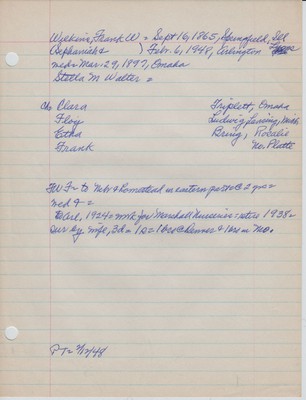 Wilkins, Frank W = Sept 16, 1865, Springfield, Ill
(Sephaniah & ) Febr. 6, 1948, Arlington
med= Mar. 29, 1897, Omaha
Stella M Walter =
Ch Clara Triplett, Omaha
Floy Ludwig, Lansing, Mich
Etha Bring, Rosalie
Frank No. Platte
FW F= to Nebr & homestead in eastern part
med & =
to Arl, 1924= wrk for Marshall Nurseries= 1938=
sur by wife, 3d= 1s= 1 bro @ Denver & 1 bro in Mo.
PT= 2/12/48